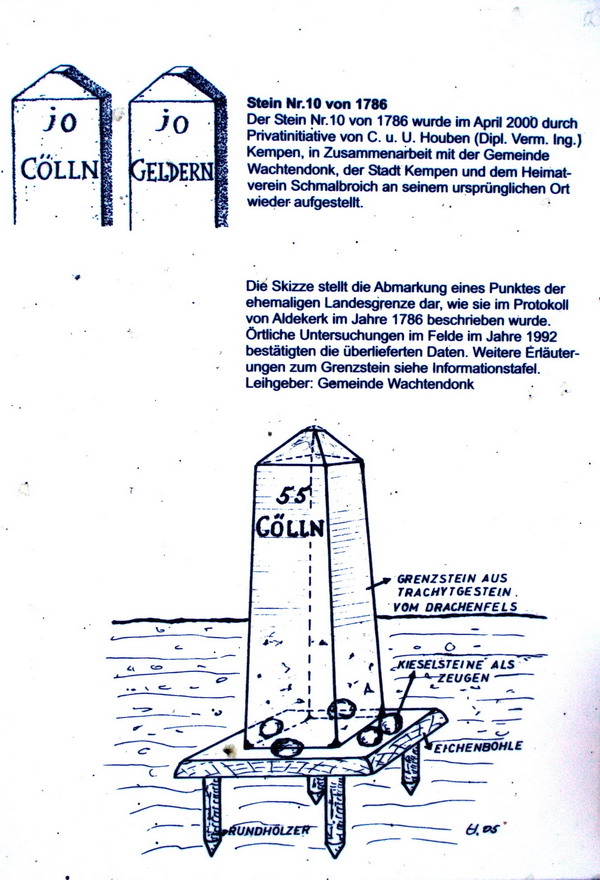 jo
CÖLLN
jo
GELDERN
Stein Nr.10 von 1786
Der Stein Nr.10 von 1786 wurde im April 2000 durch
Privatinitiative von C. u. U. Houben (Dipl. Verm. Ing.)
Kempen, in Zusammenarbeit mit der Gemeinde
Wachtendonk, der Stadt Kempen und dem Heimat-
verein Schmalbroich an seinem ursprünglichen Ort
wieder aufgestellt.
Die Skizze stellt die Abmarkung eines Punktes der
ehemaligen Landesgrenze dar, wie sie im Protokoll
von Aldekerk im Jahre 1786 beschrieben wurde.
Örtliche Untersuchungen im Felde im Jahre 1992
bestätigten die überlieferten Daten. Weitere Erläuter-
ungen zum Grenzstein siehe Informationstafel.
Leihgeber: Gemeinde Wachtendonk
55
CÖLLN
GRENZSTEIN AUS
TRACHYTGESTEIN.
VOM DRACHENFELS
KIESELSTEINE ALS
ZEUGEN
EICHENBOHLE
RUNDHÖLZER